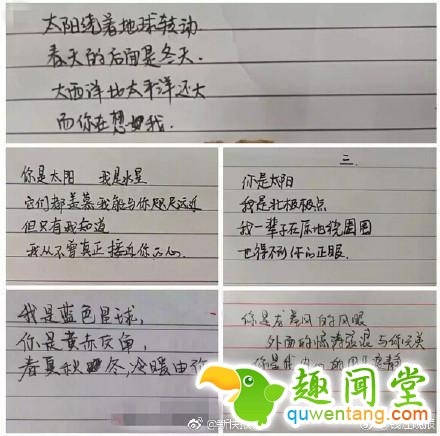 太阳绕着地球转动
春天的后面是冬天.
大西洋比太平洋还大
而你在想我.
你是太阳 我是水星
它们都羡慕我能与你咫尺远近
但只有我知道
我从不曾真正接近你的心
三.
你是太阳
我是北极极点
我一辈子在原地绕圈圈
也得不到你的正眼
我是蓝色星球,
你是黄赤交角,
春夏秋冬,冷暖由你
你是龙卷风的风眼
外面的惊涛骇浪与你无关
你是我
趣闻堂
quwentang.com
@新快报